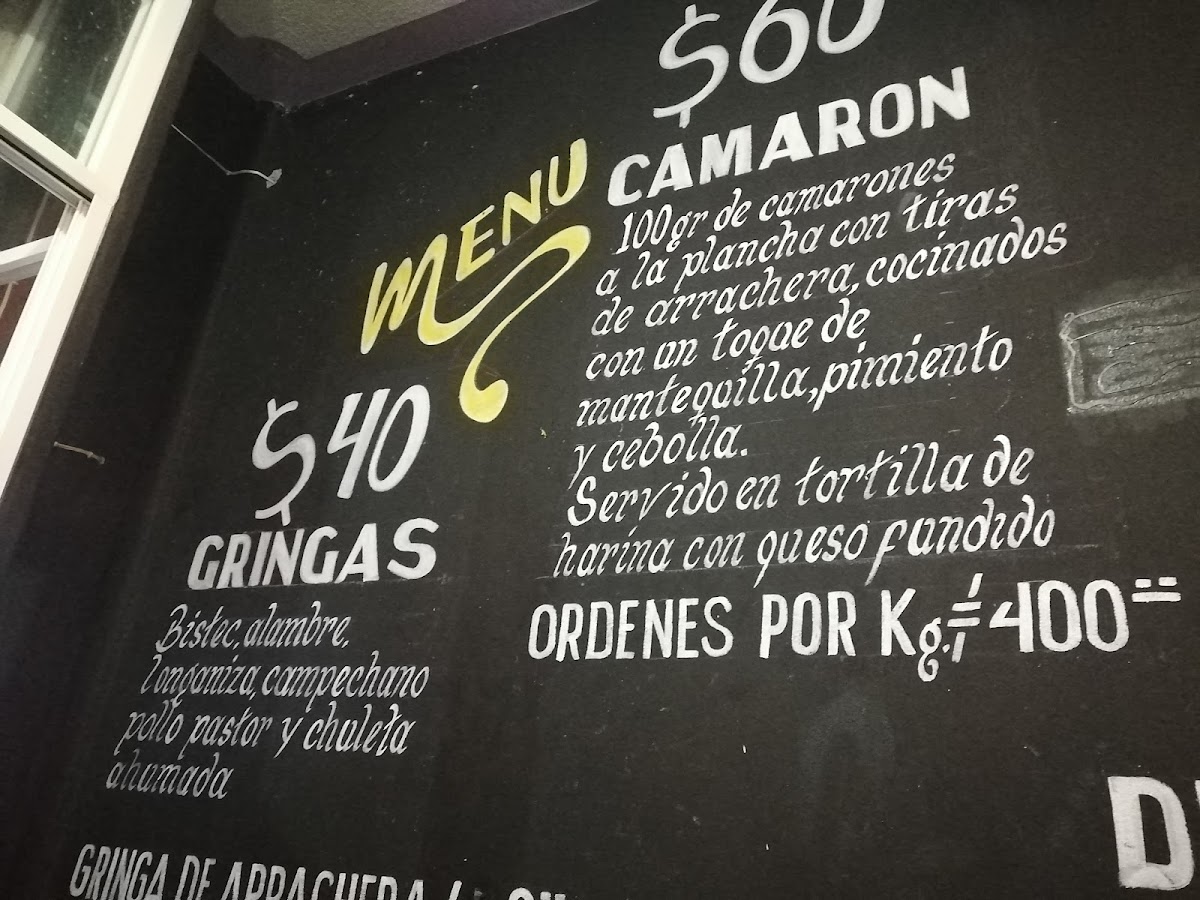 MENU
$60
CAMARON
100gr de camarones
a la plancha con tiras
de arrachera, cocinados
con un toque de
mantequilla, pimiento
y cebolla.
Servido en tortilla de
harina con queso fundido
ORDENES POR Kg. $400=
$40
GRINGAS
Bistec, alambre,
longaniza, campechano
pollo pastor y chuleta
ahumada
GRINGA DE ARRACHERA